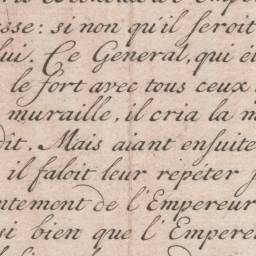 esse: si non qu'il seroit
lui. Ce General, qui é
le fort avec tous ceux
muraille, il cria la m
dit. Mais aiant ensuite
il faloit leur repeter
ntement de l'Empereur
si bien que l'Empere